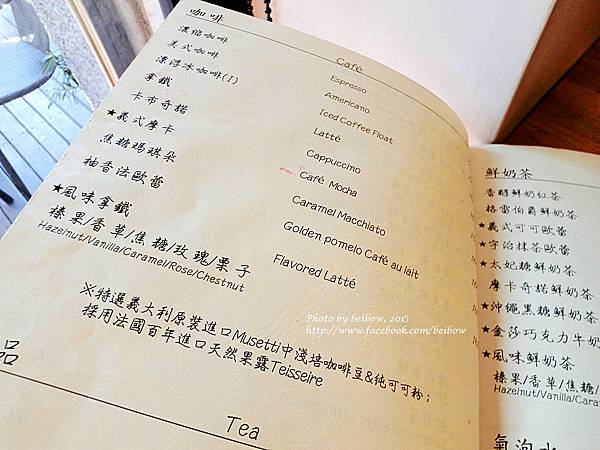 咖啡
Café
濃縮咖啡 Espresso
美式咖啡 Americano
漂浮冰咖啡(I) Iced Coffee Float
拿鐵 Latté
卡布奇諾 Cappuccino
★義式摩卡 Café Mocha
焦糖瑪琪朵 Caramel Macchiato
柚香法歐蕾 Golden pomelo Café au lait
★風味拿鐵 Flavored Latté
榛果/香草/焦糖/玫瑰/栗子
Hazelnut/Vanilla/Caramel/Rose/Chestnut
※特選義大利原裝進口Musetti中淺培咖啡豆&純可可粉；
採用法國百年進口天然果露Teisseire
品
Tea
鮮奶茶
香醇鮮奶紅茶
格雷伯爵鮮奶茶
★義式可可歐蕾
★宇治抹茶歐蕾
★太妃糖鮮奶茶
摩卡奇諾鮮奶茶
★沖繩黑糖鮮奶茶
★金莎巧克力牛奶
★風味鮮奶茶
榛果/香草/焦糖/
Hazelnut/Vanilla/Cara
氣泡水
Photo by beibow, 2015
http://www.facebook.com/beibow